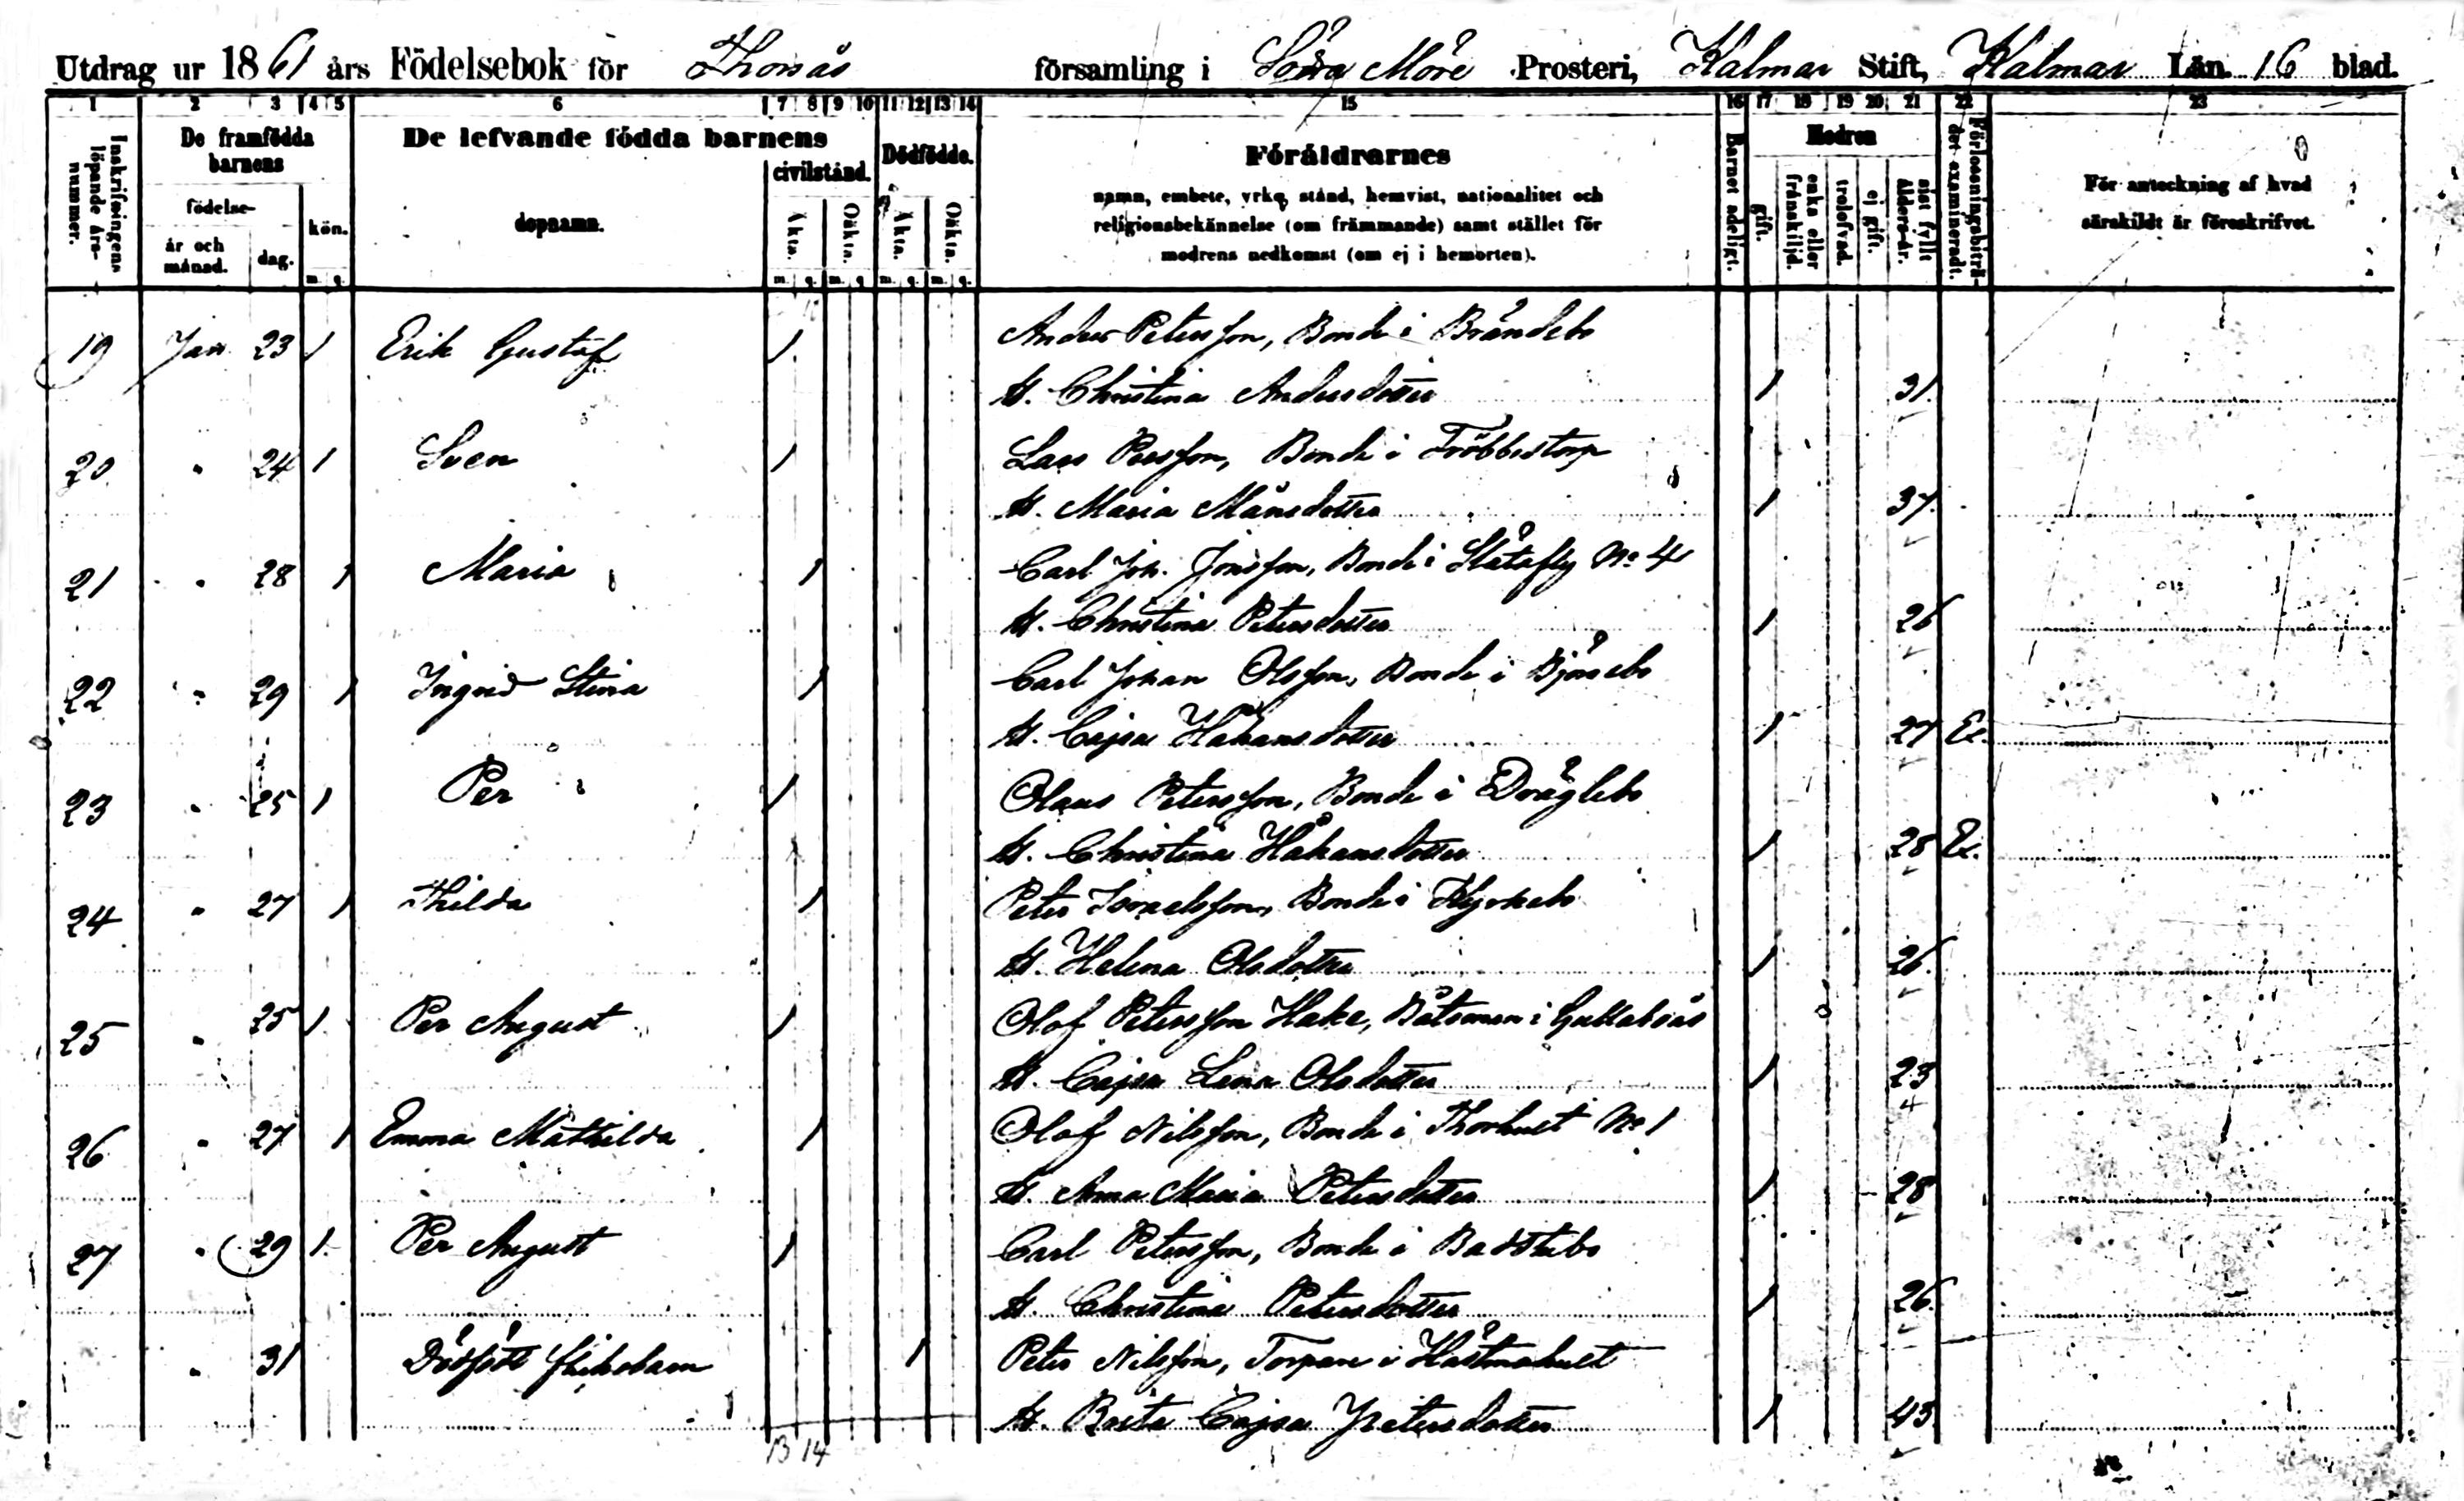 Utdrag ur 1861 års Födelsebok för Thorsås församling i Södra Möre Prosteri, Kalmar Stift, Kalmar Län. 16 blad.
1 2 3 4 5 6 7 8 9 10 11 12 13 14 15 16 17 18 19 20 21 22 23
Inskrifningens löpande års-nummer.
De framfödda barnens
födelse-
år och månad.
dag.
kön.
m. q.
De lefvande födda barnens
dopnamn.
civilstånd.
Äkta.
Oäkta.
m. q. m. q.
Dödfödde.
Äkta.
Oäkta.
m. q. m. q.
Föräldrarnes
namn, embete, yrke, stånd, hemvist, nationalitet och
religionsbekännelse (om främmande) samt stället för
modrens nedkomst (om ej i hemorten).
Barnet adeligt.
Modren
gift.
enka eller frånskiljd.
trolofvad.
ej gift.
sist fyllt ålders-år.
Förlossningsbiträ-det examineradt.
För anteckning af hvad
särskildt är föreskrifvet.
19 Jan 23 1 Erik Gustaf 1 Anders Petersson, Bonde i Brändebo
H. Christina Andersdotter 1 31
20 " 24 1 Sven 1 Lars Persson, Bonde i Fröbbestorp
H. Maria Månsdotter 1 37
21 " 28 1 Maria 1 Carl Joh. Jonsson, Bonde i Slätafly No 4
H. Christina Petersdotter 1 26
22 " 29 1 Ingrid Stina 1 Carl Johan Olsson, Bonde i Björsebo
H. Cajsa Håkansdotter 1 27 Ex.
23 " 25 1 Per 1 Olaus Petersson, Bonde i Dräglebo
H. Christina Håkansdotter 1 28 Ex.
24 " 27 1 Thilda 1 Peter Israelsson, Bonde i Kyrkebo
H. Helena Olsdotter 1 26
25 " 25 1 Per August 1 Olof Petersson Hake, Båtsman i Gullabo
H. Cajsa Lena Olsdotter 1 23
26 " 27 1 Emma Mathilda 1 Olof Nilsson, Bonde i Thorhult No 1
H. Anna Maria Petersdotter 1 28
27 " 29 1 Per August 1 Carl Petersson, Bonde i Badstubo
H. Christina Petersdotter 1 26
" 31 Dödfödt flickebarn 1 Peter Nilsson, Torpare i Hästmahult
H. Brita Cajsa Petersdotter 1 43
13 14